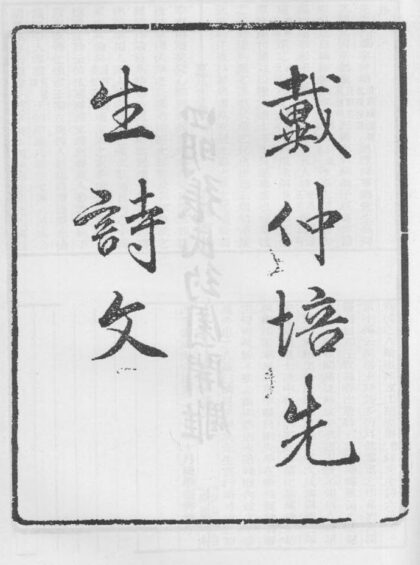 戴仲培先
生詩文